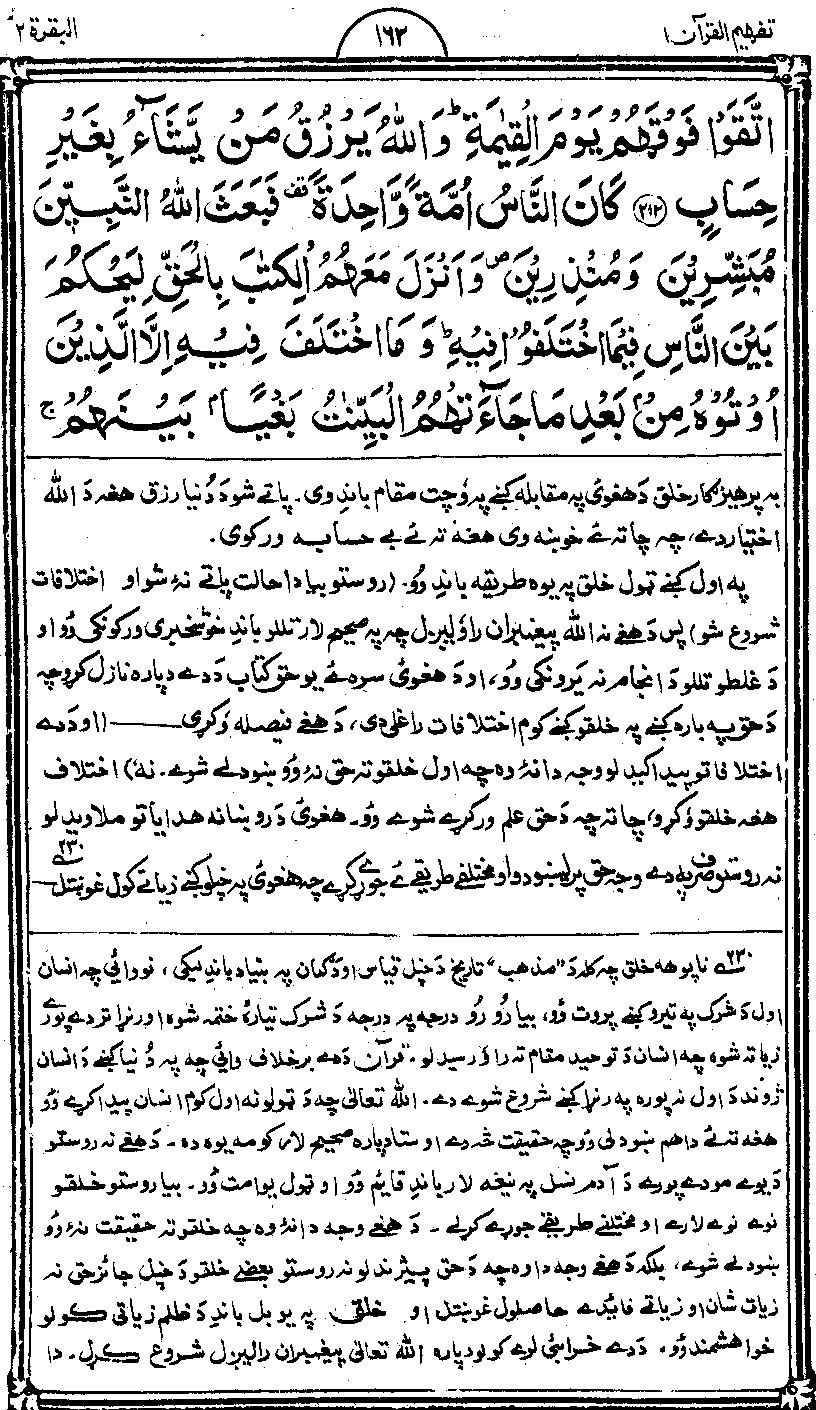 تفہیم القرآن ۱
۱۶۲
البقرة ۲
اتَّقَوْا فَوْقَهُمْ يَوْمَ الْقِيٰمَةِ ؕ وَاللّٰهُ يَرْزُقُ مَنْ يَّشَآءُ بِغَيْرِ
حِسَابٍ ﴿۲۱۲﴾ كَانَ النَّاسُ اُمَّةً وَّاحِدَةً ۫ فَبَعَثَ اللّٰهُ النَّبِيّٖنَ
مُبَشِّرِيْنَ وَمُنْذِرِيْنَ ۪ وَاَنْزَلَ مَعَهُمُ الْكِتٰبَ بِالْحَقِّ لِيَحْكُمَ
بَيْنَ النَّاسِ فِيْمَا اخْتَلَفُوْا فِيْهِ ؕ وَمَا اخْتَلَفَ فِيْهِ اِلَّا الَّذِيْنَ
اُوْتُوْهُ مِنْۢ بَعْدِ مَا جَآءَتْهُمُ الْبَيِّنٰتُ بَغْيًۢا بَيْنَهُمْ ۚ
به پرهیزګار خلق دَ هغوئ په مقابله کښے په وُچت مقام باندِ وی۔ پاتے شو دَ دُنیا رزق هغه دَ الله
اختیار دے، چه چاته ئے خوښه وی هغهٔ ته ئے بے حسابه ورکوی.
په اول کښے ټول خلق په یوه طریقه باندِ وُو. (روستو بیا دا حالت پاتے نهٔ شو او اختلافات
شروع شو) پس دَ هغے نه الله پیغمبران راوٗلیږل چه په صحیح لار تللو باندِ خوشخبری ورکونکی وُو او
دَ غلطو تللو دَ انجام نه یَرونکی وُو، او دَ هغوئ سره ئے یو حق کتاب دَ دے دپاره نازل کړو چه
دَ حق په باره کښے په خلقو کښے کوم اختلافات راغلی دی، دَ هغے فیصله وُکړی ـــــ (او دَ دے
اختلافاتو پیدا کیدلو وجه دا نهٔ وه چه اول خلقو ته حق نهٔ وُو ښودلے شوے. نهٔ) اختلاف
هغه خلقو وُکړو، چاته چه دَ حق علم ورکړے شوے وُو۔ هغوئ دَ روښانه هدایاتو ملاویدلو
نه روستو صرف په دے وجه حق پریښودو او مختلفے طریقے ئے جوړے کړے چه هغوئ په خپلو کښے زیاتے کول غوښتل ۲۳۰ـــــ
۲۳۰ ناپوهه خلق چه کله دَ "مذهب" تاریخ دَ خپل قیاس او دَ ګمان په بنیاد باندِ لیکی، نو وائی چه انسان
اول دَ شرک په تیرو کښے پروت وُو، بیا رُو رُو درجه په درجه دَ شرک تیارهٔ ختمه شوه او رنړا تر دے پورے
زیاته شوه چه انسان دَ توحید مقام ته راوٗرسیدلو. قرآن دَ دے برخلاف وائی چه په دُنیا کښے دَ انسان
ژوند دَ اول نه پوره په رنړا کښے شروع شوے دے. الله تعالیٰ چه دَ ټولو نه اول کوم انسان پیدا کړے وُو
هغه ته ئے دا هم ښودلی وُو چه حقیقت څه دے او ستا دپاره صحیح لار کومه یوه ده۔ دَ هغے نه روستو
دَ یوے مودے پورے دَ آدم نسل په نیغه لار باندِ قایم وُو او ټول یو امت وُو۔ بیا روستو خلقو
نوے نوے لارے او مختلفے طریقے جوړے کړلے۔ دَ هغے وجه دا نهٔ وه چه خلقو ته حقیقت نهٔ وُو
ښودلے شوے، بلکه دَ هغے وجه دا وه چه دَ حق پیژندلو نه روستو بعضے خلقو دَ خپل جائز حق نه
زیات شان او زیاتے فائدے حاصلول غوښتل او خلق په یو بل باندِ دَ ظلم زیاتی کولو
خواهشمند وُو. دَ دے خرابئ لرے کولو دپاره الله تعالیٰ پیغمبران رالیږل شروع کړل۔ دا